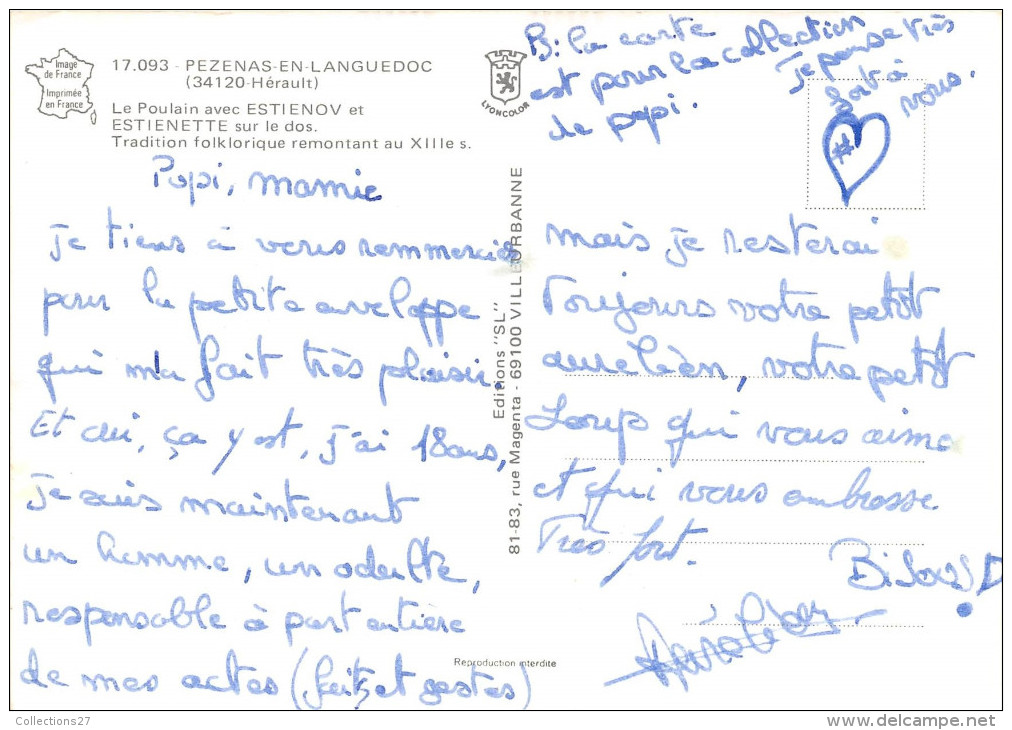 Image
de France
Imprimée
en France
17.093 - PEZENAS-EN-LANGUEDOC
(34120-Hérault)
Le Poulain avec ESTIENOV et
ESTIENETTE sur le dos.
Tradition folklorique remontant au XIIIe s.
LYONCOLOR
B: la carte
est pour la collection
de papi.
Je pense très
fort à
vous.
Papi, mamie
je tiens à vous remmercier
pour la petite enveloppe
qui m'a fait très plaisir.
Et oui, ça y est, j'ai 18 ans,
je suis maintenant
un homme, un adulte,
responsable à part entière
de mes actes (faits et gestes)
Editions "SL"
81-83, rue Magenta - 69100 VILLEURBANNE
mais je resterai
Toujours votre petit
aurélien, votre petit
Loup qui vous aime
et qui vous embrasse
Très fort.
Bisous
Reproduction interdite
Collections27
delcampe.net